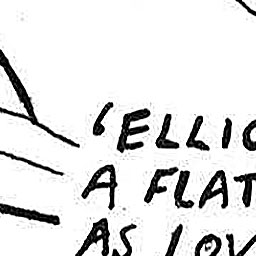 'ELLIO
A FLAT
AS LOV